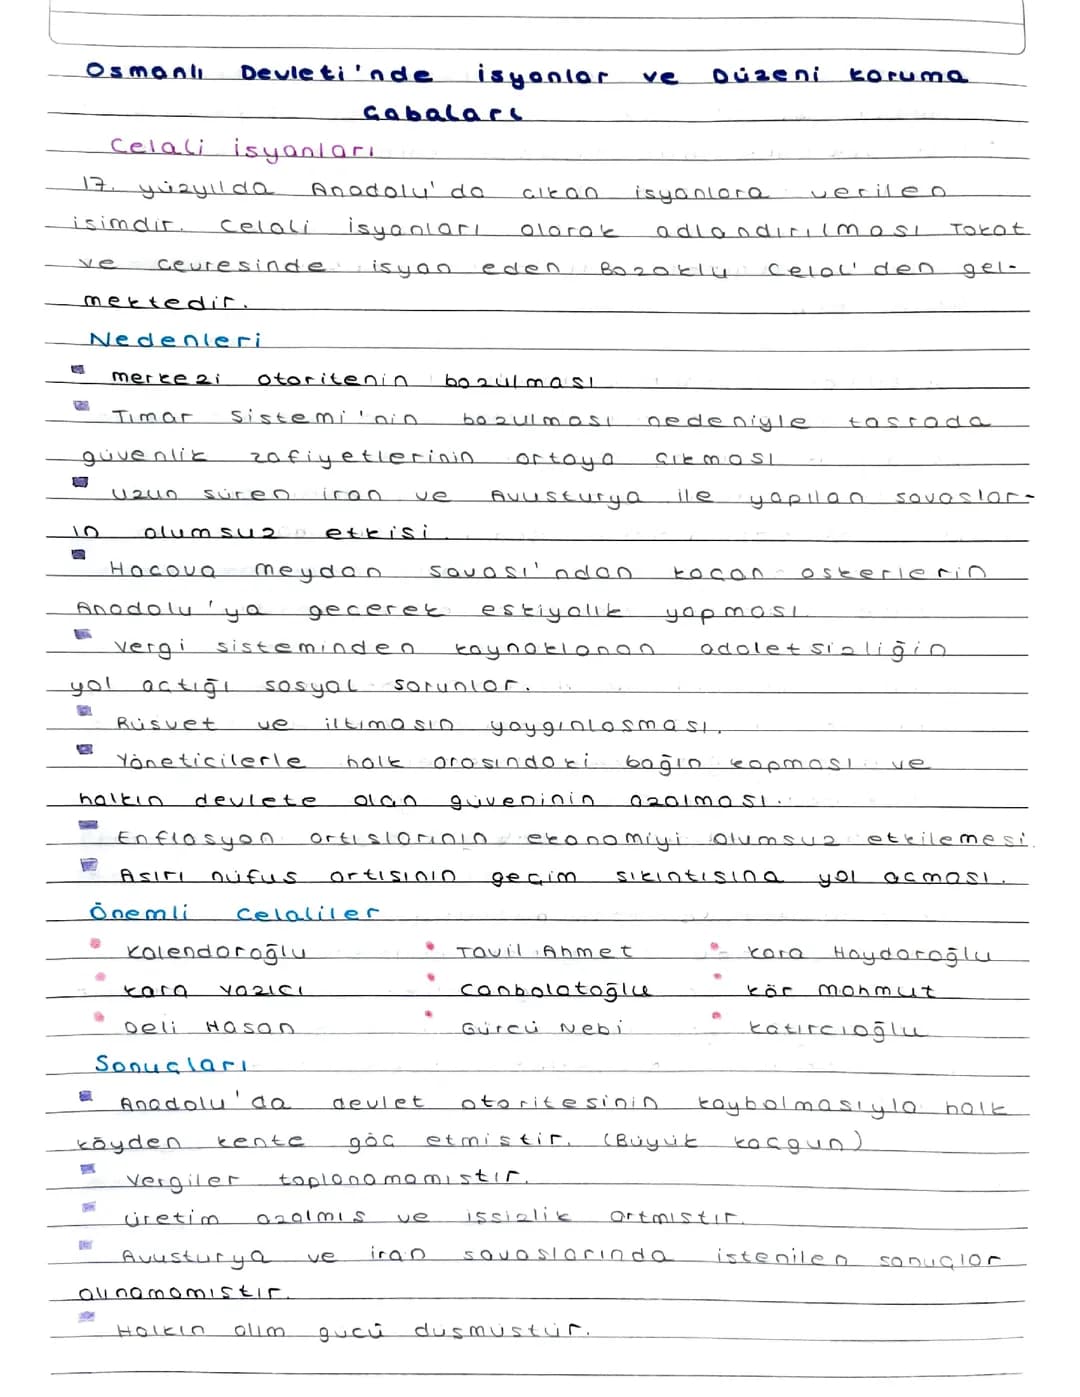 Osmanlı Devleti'nde isyanlar ve Düzeni Koruma
Çabaları
Celali isyanları
17. yüzyılda Anadolu'da çıkan isyanlara verilen
isimdir. Celali isyanları olarak adlandırılması Tokat
ve çevresinde isyan eden Bozoklu Celal'den gel-
mektedir.
Nedenleri
merkezi otoritenin bozulması
Tımar Sistemi'nin bozulması nedeniyle taşrada
güvenlik zafiyetlerinin ortaya çıkması
uzun süren iran ve Avusturya ile yapılan savaşlar-
ın olumsuz etkisi.
Haçova meydan savaşı'ndan kaçan askerlerin
Anadolu'ya geçerek eşkiyalık yapması.
Vergi sisteminden kaynaklanan adaletsizliğin
yol açtığı sosyal sorunlar.
Rüşvet ve iltimasın yaygınlaşması.
Yöneticilerle halk arasındaki bağın kopması ve
halkın devlete olan güveninin azalması.
Enflasyon artışlarının ekonomiyi olumsuz etkilemesi.
Aşırı nüfus artışının geçim sıkıntısına yol açması.
Önemli Celaliler
Kalendaroğlu Tavil Ahmet Kara Haydaroğlu
Kara Yazıcı Canbolatoğlu Kör mahmut
Deli Hasan Gürcü Nebi Katırcıoğlu
Sonuçları
Anadolu'da devlet otoritesinin kaybolmasıyla halk
köyden kente göç etmiştir. (Büyük kaçgun)
Vergiler toplanamamıştır.
üretim azalmış ve işsizlik artmıştır.
Avusturya ve iran savaşlarında istenilen sonuçlar
alınamamıştır.
Halkın alım gücü düşmüştür.